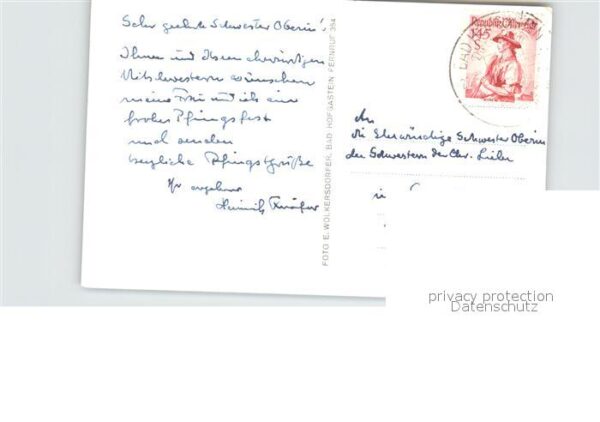 Sehr geehrte Schwester Oberin!
Ihnen und Ihren ehrwürdigen
Mitschwestern wünschen
meine Frau und ich ein
frohes Pfingstfest
und senden
herzliche Pfingstgrüße
Ihr ergebener
Heinrich
FOTO E. WOLKERSDORFER, BAD HOFGASTEIN FERNRUF 354
Republik Österreich
1.45
BAD
An
die Ehrwürdige Schwester Oberin
der Schwestern der Chr. Liebe
in
privacy protection
Datenschutz